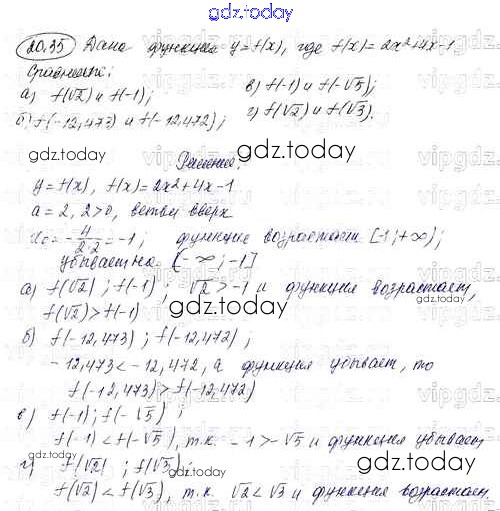 gdz.today
20.35 Дана функция y=f(x), где f(x)=2x²+4x-1
Сравните:
а) f(√2) и f(-1);
в) f(-1) и f(-√5);
б) f(-12,473) и f(-12,472);
г) f(√2) и f(√3).
gdz.today
gdz.today
Решение:
y=f(x), f(x)=2x²+4x-1
a=2, 2>0, ветви вверх
x₀=-4/2·2=-1; функция возрастает [-1;+∞);
убывает на [-∞;-1]
а) f(√2); f(-1); √2>-1 и функция возрастает,
f(√2)>f(-1)
gdz.today
б) f(-12,473); f(-12,472);
-12,473<-12,472, а функция убывает, то
f(-12,473)>f(-12,472)
в) f(-1); f(-√5);
f(-1)<f(-√5), т.к. -1>-√5 и функция убывает
gdz.today
г) f(√2); f(√3);
gdz.today
f(√2)<f(√3), т.к. √2<√3 и функция возрастает.